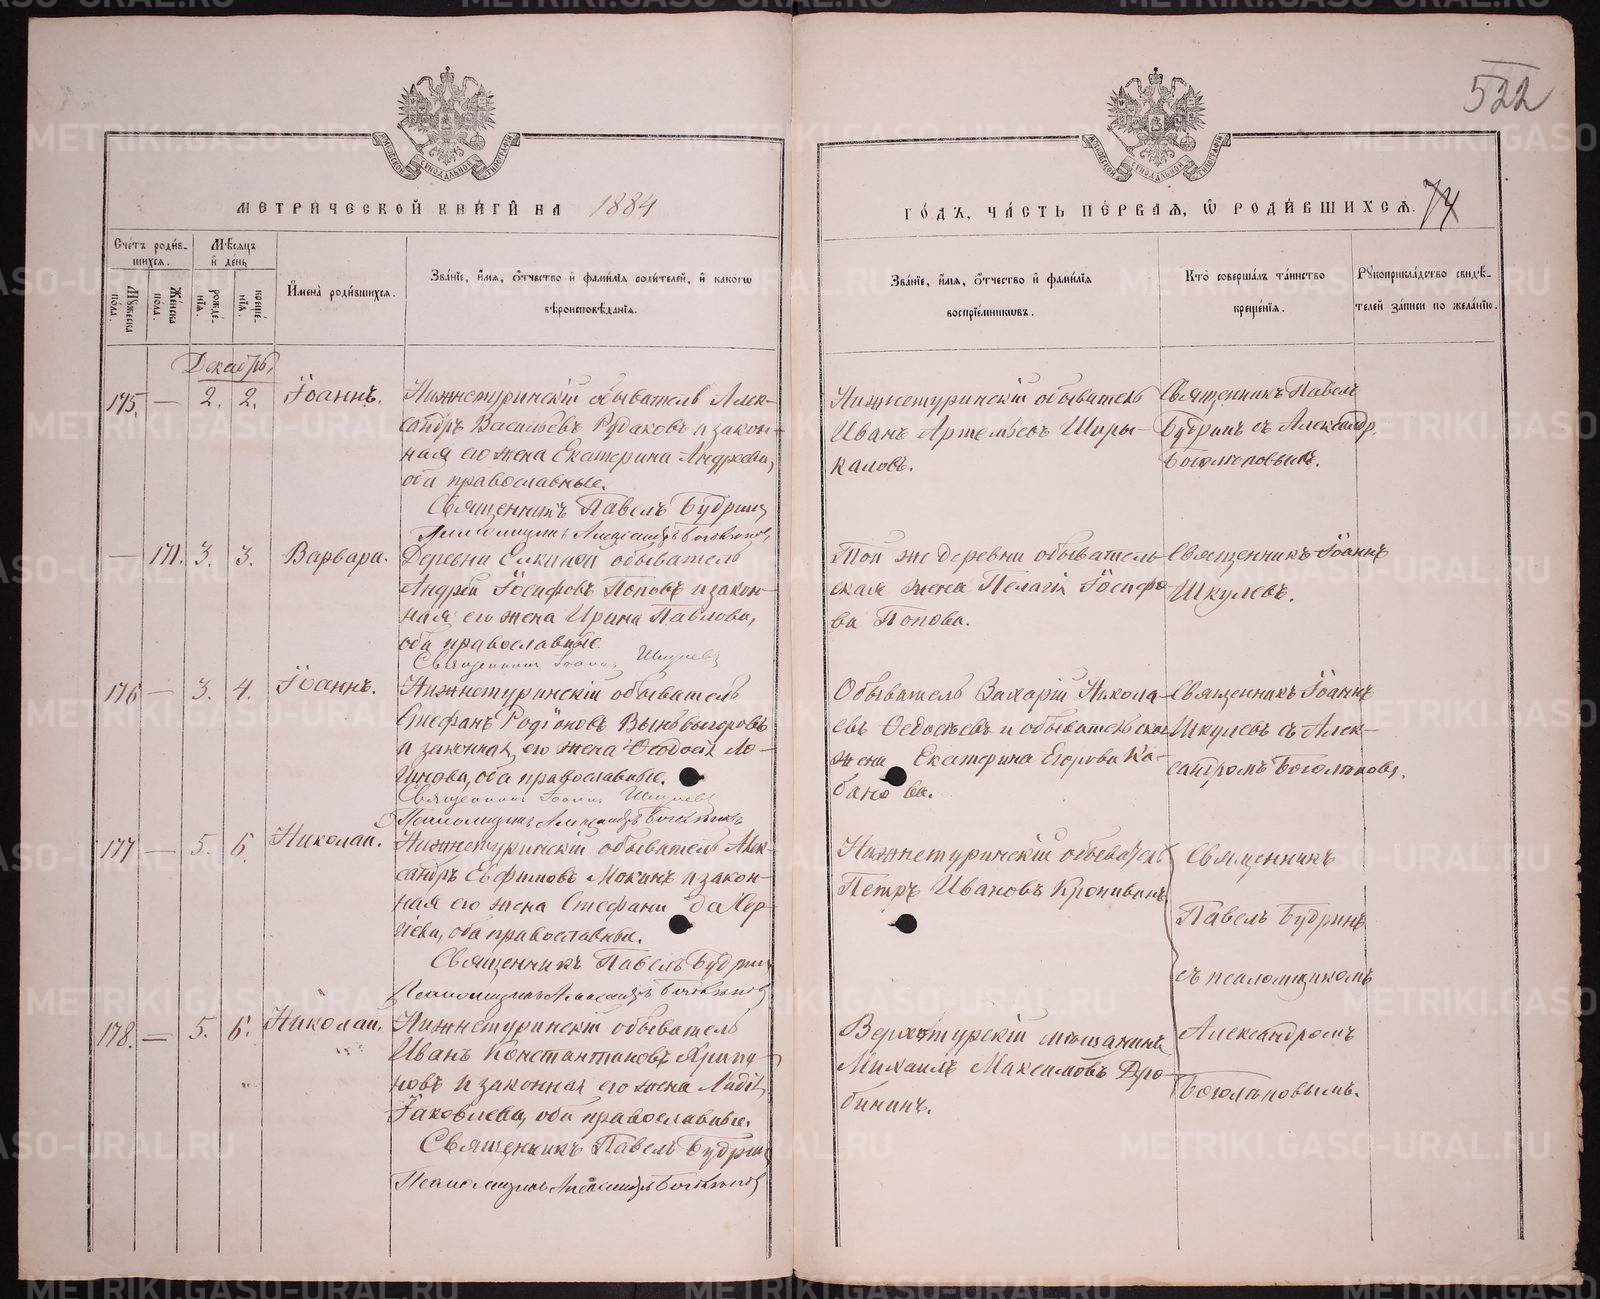 522
МЕТРИЧЕСКОЙ КНИГИ НА 1884
ГОДЪ, ЧАСТЬ ПЕРВАЯ, Ѡ РОДИВШИХСЯ. 74
Счетъ родив-
шихся.
Мѣсяцъ
и день
Мужеска
пола.
Женска
пола.
рожде-
нія.
креще-
нія.
Имена родившихся.
Званіе, имя, ѿчество и фамилія родителей, и какогѡ
вѣроисповѣданія.
Званіе, имя, ѿчество и фамилія
воспріемниковъ.
Кто совершалъ таинство
крещенія.
Рукоприкладство свидѣ-
телей записи по желанію.
Декабрь
175. — 2. 2. Іоаннъ.
Нижнетуринскій обыватель Алек-
сандръ Васильевъ Рудаковъ и закон-
ная его жена Екатерина Андреева,
оба православные.
Священникъ Павелъ Будринъ
Нижнетуринскій обыватель
Иванъ Артемьевъ Ширы-
каловъ.
Священникъ Павелъ
Будринъ съ Александр.
Боголѣповымъ.
— 171. 3. 3. Варвара.
Деревни Елкиной обыватель
Андрей Іосифовъ Поповъ и закон-
ная его жена Ирина Павлова,
оба православные
Священникъ Іоаннъ Шкулевъ
Той же деревни обыватель-
ская жена Пелагія Іосифо-
ва Попова.
Священникъ Іоаннъ
Шкулевъ.
176 — 3. 4. Іоаннъ.
Нижнетуринскій обыватель
Стефанъ Родіоновъ
и законная его жена Ѳеодосія Ло-
гинова, оба православные.
Священникъ Іоаннъ Шкулевъ
Псаломщикъ Александръ Боголѣповъ
Обыватель Захарій Никола-
евъ Ѳедосѣевъ и обывательская
жена Екатерина Егорова Ка-
банова.
Священникъ Іоаннъ
Шкулевъ съ Алек-
сандромъ Боголѣповы.
177 — 5. 6. Николай.
Нижнетуринскій обыватель Алек-
сандръ Евфимовъ Мокинъ и закон-
ная его жена Стефанида Сер-
гіева, оба православные.
Священникъ Павелъ Будринъ
Псаломщикъ Александръ Боголѣповъ
Нижнетуринскій обыватель
Петръ Ивановъ Кропивинъ
Священникъ
Павелъ Будринъ
съ псаломщикомъ
Александромъ
Боголѣповымъ.
178. — 5. 6. Николай.
Нижнетуринскій обыватель
Иванъ Константиновъ Ярипу-
новъ и законная его жена Лидія
Іаковлева, оба православные.
Священникъ Павелъ Будринъ
Псаломщикъ Александръ Боголѣповъ
Верхотурскій мѣщанинъ
Михаилъ Максимовъ Дро-
бининъ.
METRIKI.GASO-URAL.RU